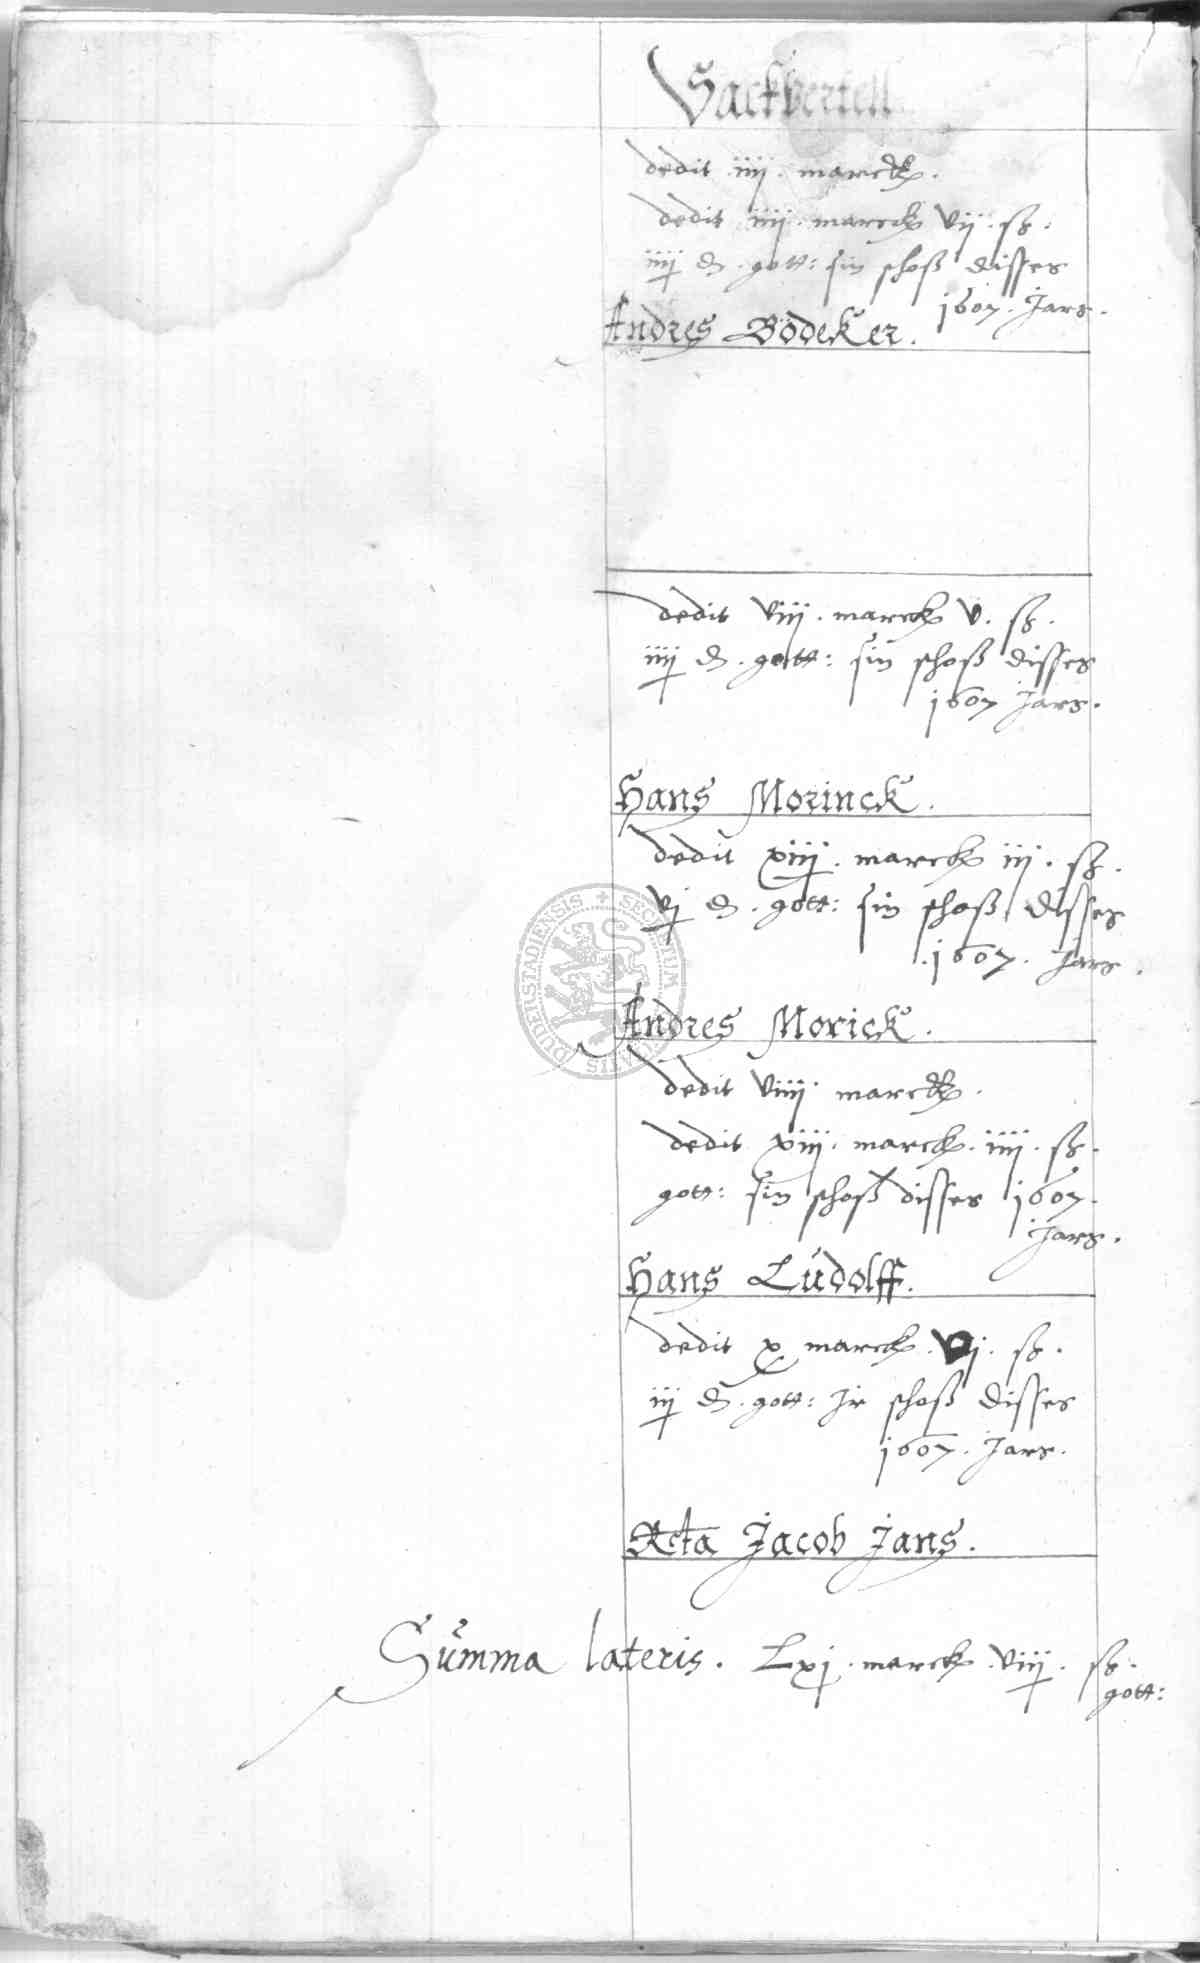 Sackvertell
dedit iiij. marck.
dedit iiij. marck vij. ß.
iiij d. gott: sin schoß disses
1607. Jars.
Andres Bödeker.
dedit viij. marck v. ß.
iiij d. gott: sin schoß disses
1607 Jars.
Hans Morinck.
dedit xiiij. marck iij. ß.
vj d. gott: sin schoß disses
.1607. Jars.
Andres Morick.
dedit viiij. marck.
dedit xiij. marck. iiij. ß.
gott: sin schoß disses 1607.
Jars.
Hans Ludolff.
dedit x marck. vj. ß.
iiij d. gott: Jr schoß disses
1607. Jars.
Reta Jacob Jans.
Summa lateris. Lxj. marck. viij. ß.
gott:
SECRETUM CIVITATIS DUDERSTADIENSIS